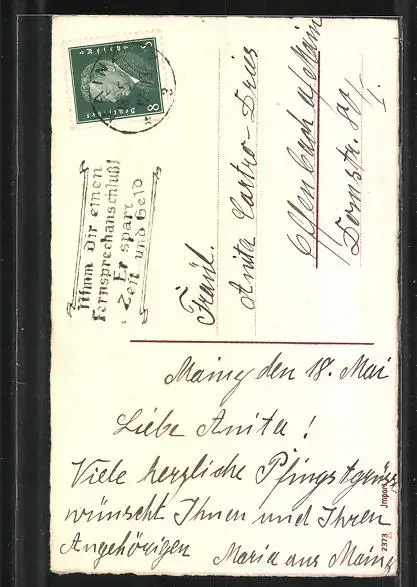 Deutsches Reich
8
Nimm Dir einen
Fernsprechanschluß!
Er spart
Zeit und Geld
Fräul.
Anita Castro-Dries
Offenbach a/Main
Domstr.
Mainz den 18. Mai
Liebe Anita!
Viele herzliche Pfingstgrüsse
wünscht Ihnen und Ihren
Angehörigen Maria aus Mainz
2373 Import